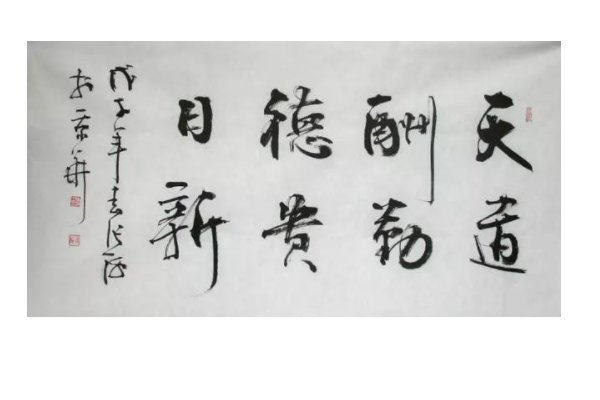 天道
酬勤
德贵
日新
戊子年